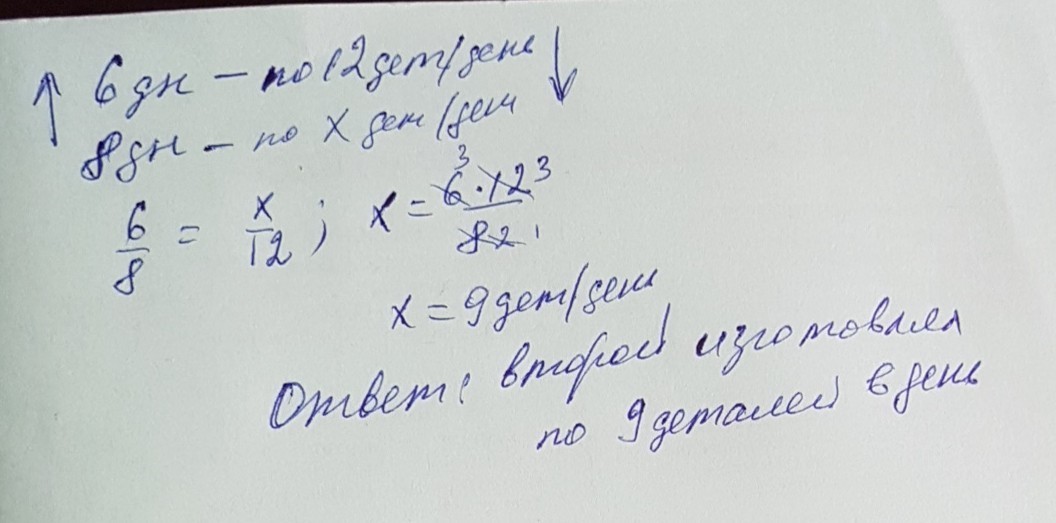 ↑ 6 дн — по 12 дет/день ↓
8 дн — по x дет/день
6/8 = x/12 ; x = 6·12/8 3 3 2 1
x = 9 дет/день
Ответ: второй изготовлял
по 9 деталей в день